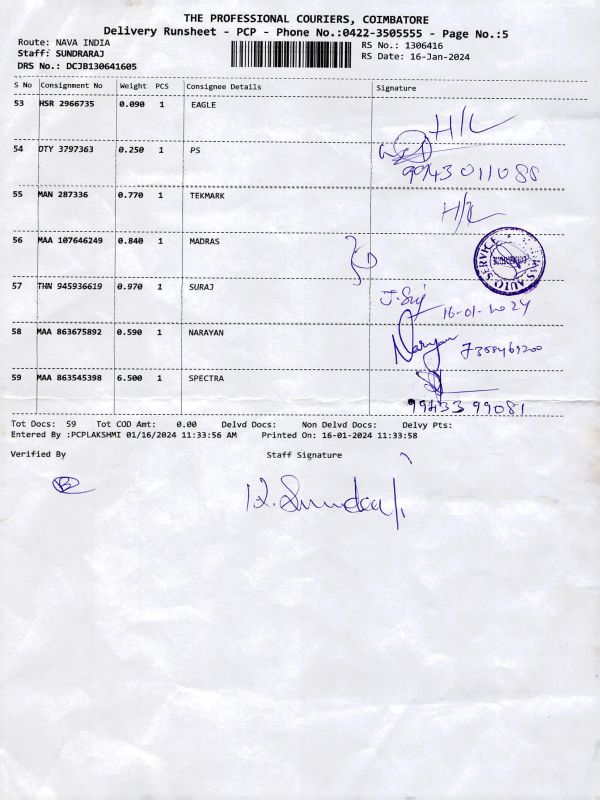 THE PROFESSIONAL COURIERS, COIMBATORE
Delivery Runsheet - PCP - Phone No.:0422-3505555 - Page No.:5
Route: NAVA INDIA RS No.: 1306416
Staff: SUNDRARAJ RS Date: 16-Jan-2024
DRS No.: DCJB130641605
S No Consignment No Weight PCS Consignee Details Signature
53 HSR 2966735 0.090 1 EAGLE
H/L
54 DTY 3797363 0.250 1 PS
9943011088
55 MAN 287336 0.770 1 TEKMARK
H/L
56 MAA 107646249 0.840 1 MADRAS
AUTO SERVICE
57 THN 945936619 0.970 1 SURAJ
16-01-2024
58 MAA 863675892 0.590 1 NARAYAN
Narayan 7358469200
59 MAA 863545398 6.500 1 SPECTRA
99433 99081
Tot Docs: 59 Tot COD Amt: 0.00 Delvd Docs: Non Delvd Docs: Delvy Pts:
Entered By :PCPLAKSHMI 01/16/2024 11:33:56 AM Printed On: 16-01-2024 11:33:58
Verified By Staff Signature